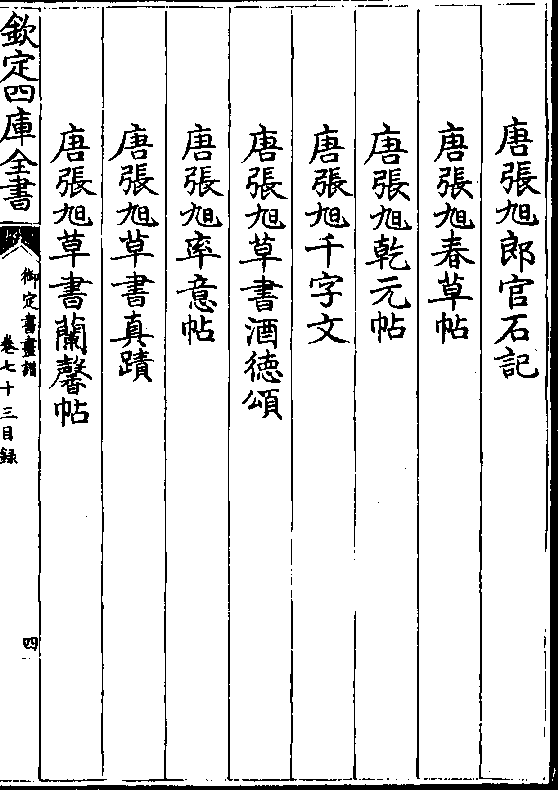 唐張旭郎官石記
唐張旭春草帖
唐張旭乾元帖
唐張旭千字文
唐張旭草書酒德頌
唐張旭率意帖
唐張旭草書真蹟
唐張旭草書蘭馨帖
欽定四庫全書
御定書畫譜
卷七十三目録
四